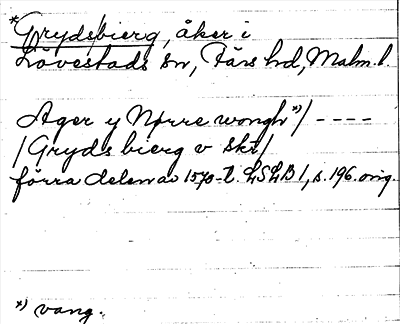 *Grydsbierg, åker i
Lövestads sn, Färs hd, Malm. l.
Ager y Nørre wongh *)/ ----
/Gryds bierg v skt/
förra delen av 1570-t. LSLB 1, s. 196. orig.
*) vang.